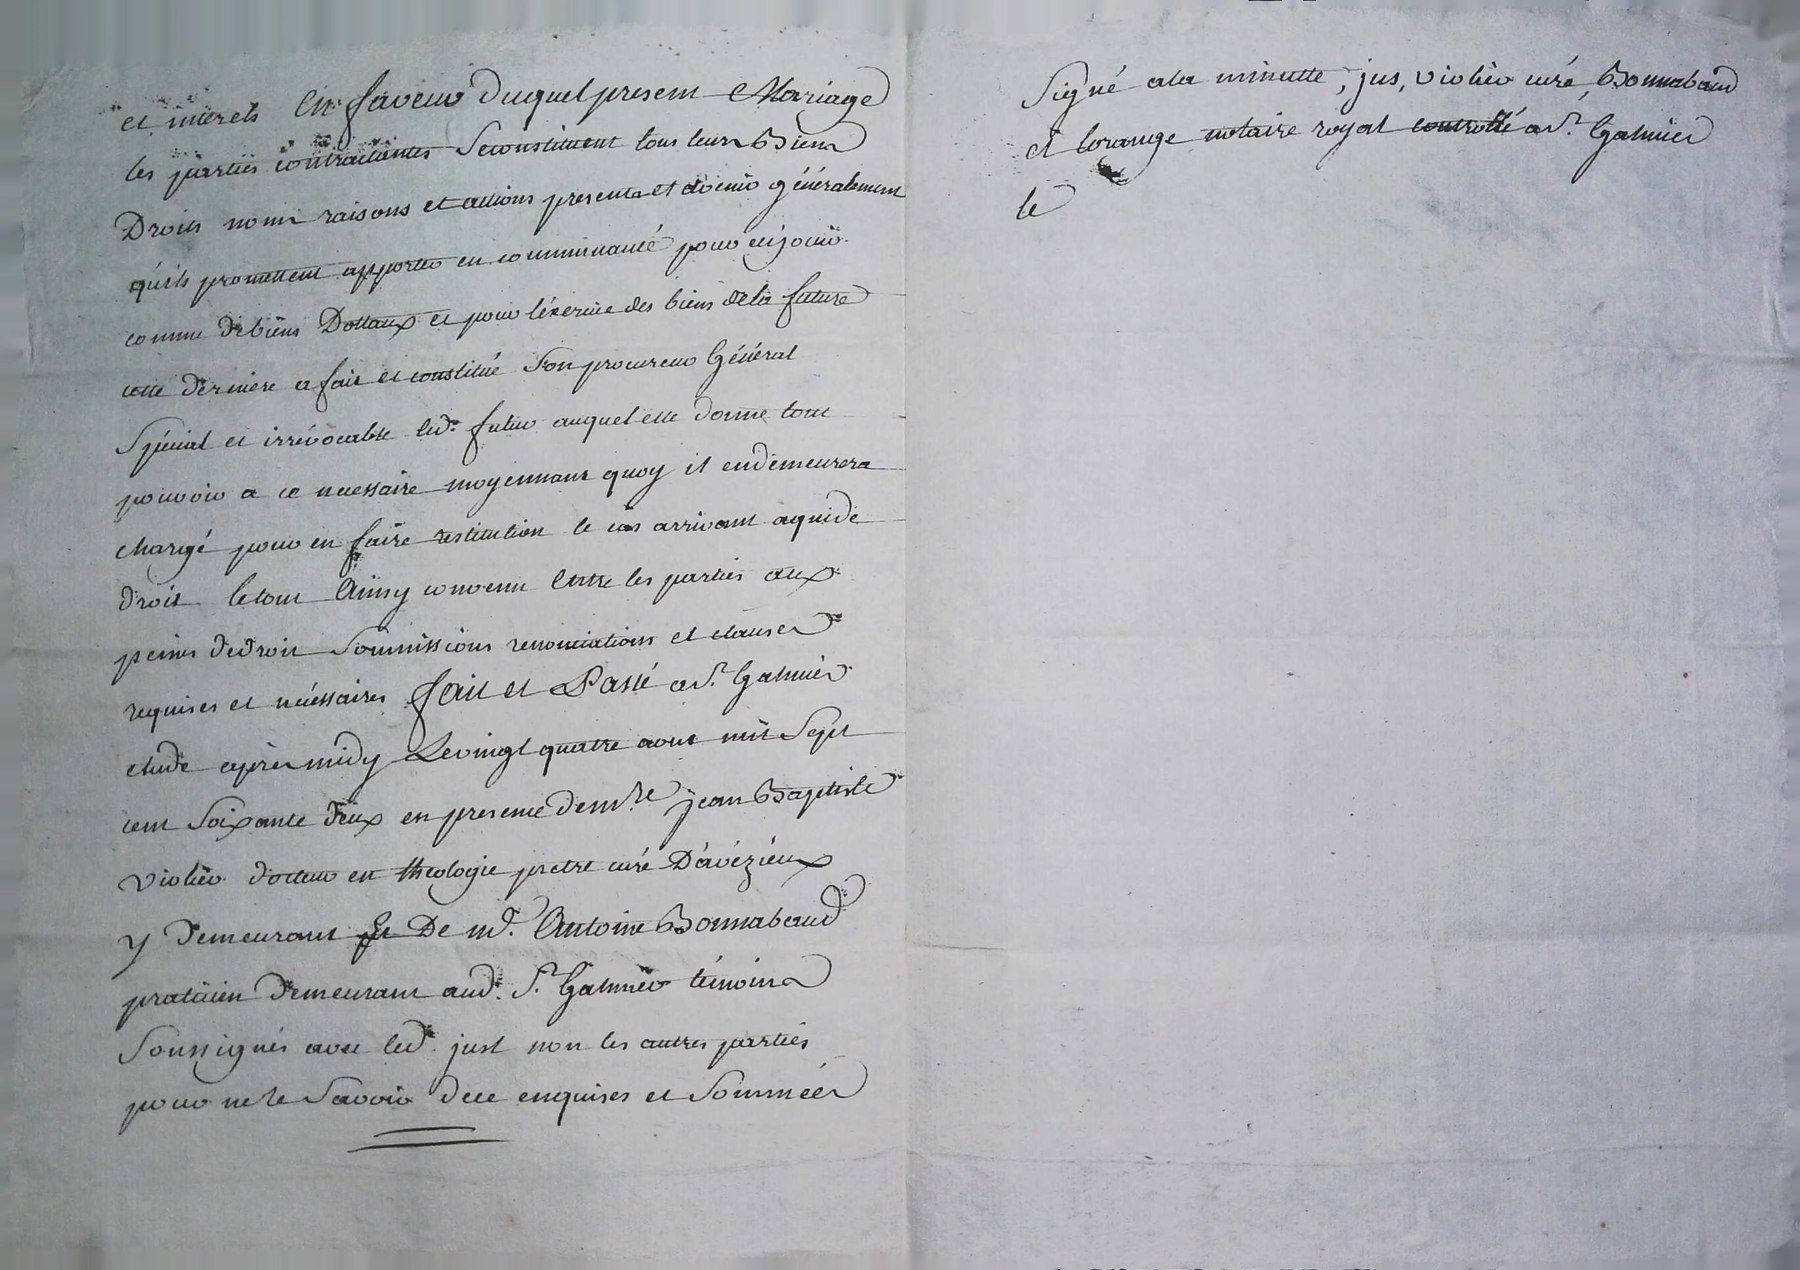 et interets En faveur duquel present Mariage
les parties contractantes Seconstituent tous leurs Biens
Droits noms raisons et actions presents et avenir généralement
qu'ils promettent apporter en communauté pour enjouir
comme de biens Dottaux et pour l'éxercice des biens dela future
cette derniere a fait et constitué Son procureur Général
Spécial et irrévocable led. futur auquel elle donne tout
pouvoir a ce necessaire moyennant quoy il endemeurera
chargé pour en faire restitution le cas arrivant aquide
droit letout Ainsy convenu Entre les parties aux
peines dedroit Soumissions renonciations et clauses
requises et nécessaires fait et Passé a St. Galmier
etude après midy Levingt quatre aout mil Sept
cent Soixante deux en presence de mre jean Baptiste
violier docteur en theologie pretre curé D'avézieux
y demeurant Et De md. Antoine Bonnabaud
praticien demeurant aud. St. Galmier témoins
Soussignés avec led. just non les autres parties
pour ne le Savoir dece enquises et Sommées
Signé ala minutte, jus, violier curé, Bonnabaud
et lorange notaire royal controllé a St. Galmier
le